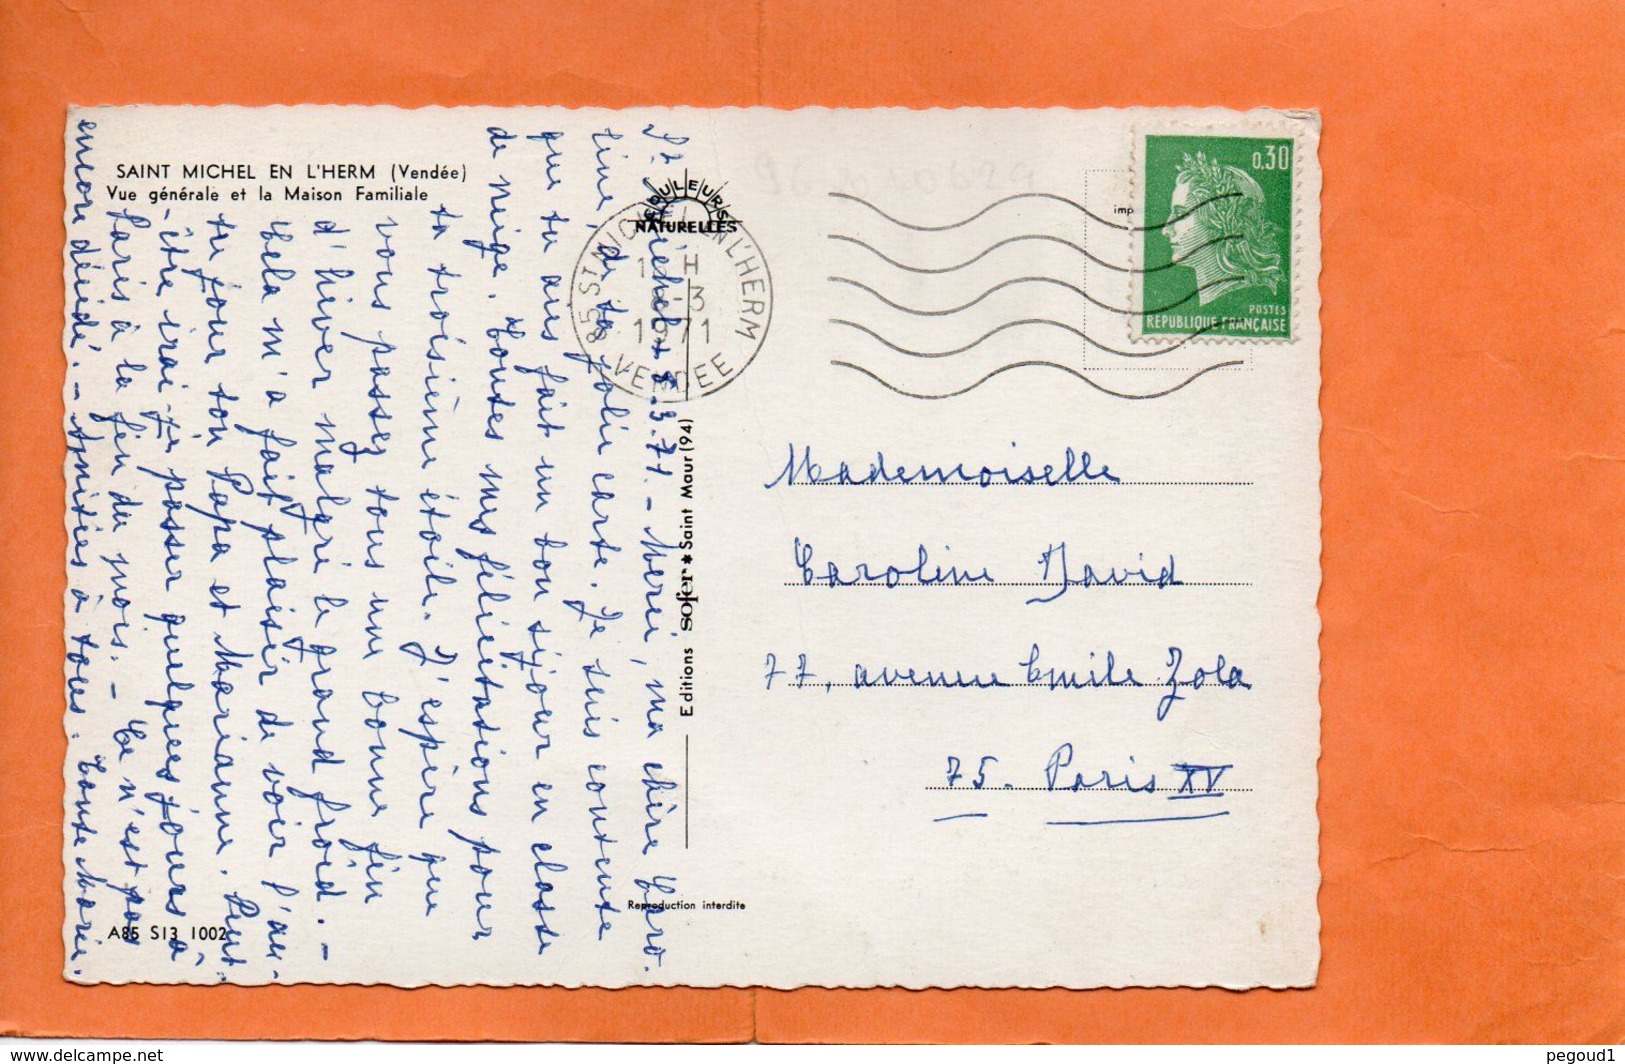 SAINT MICHEL EN L'HERM (Vendée)
Vue générale et la Maison Familiale
COULEURS
NATURELLES
85 ST MICHEL EN L'HERM
H
-3
1971
VENDEE
imp
0,30
POSTES
REPUBLIQUE FRANÇAISE
St Michel 8-3.71. - Merci, ma chère Caro-
line, de ta jolie carte. Je suis contente
que tu aies fait un bon séjour en classe
de neige. Toutes mes félicitations pour
ta troisième étoile. J'espère que
vous passez tous une bonne fin
d'hiver malgré le grand froid. -
Cela m'a fait plaisir de voir l'au-
tre jour ton Papa et Marianne. Peut-
-être irai-je passer quelques jours à
Paris à la fin du mois. - Ce n'est pas
encore décidé. - Amitiés à tous. Tante Marie.
Editions sofer * Saint Maur (94)
Mademoiselle
Caroline David
77, avenue Emile Zola
75. Paris XV
Reproduction interdite
A85 S13 1002
delcampe.net
pegoud1